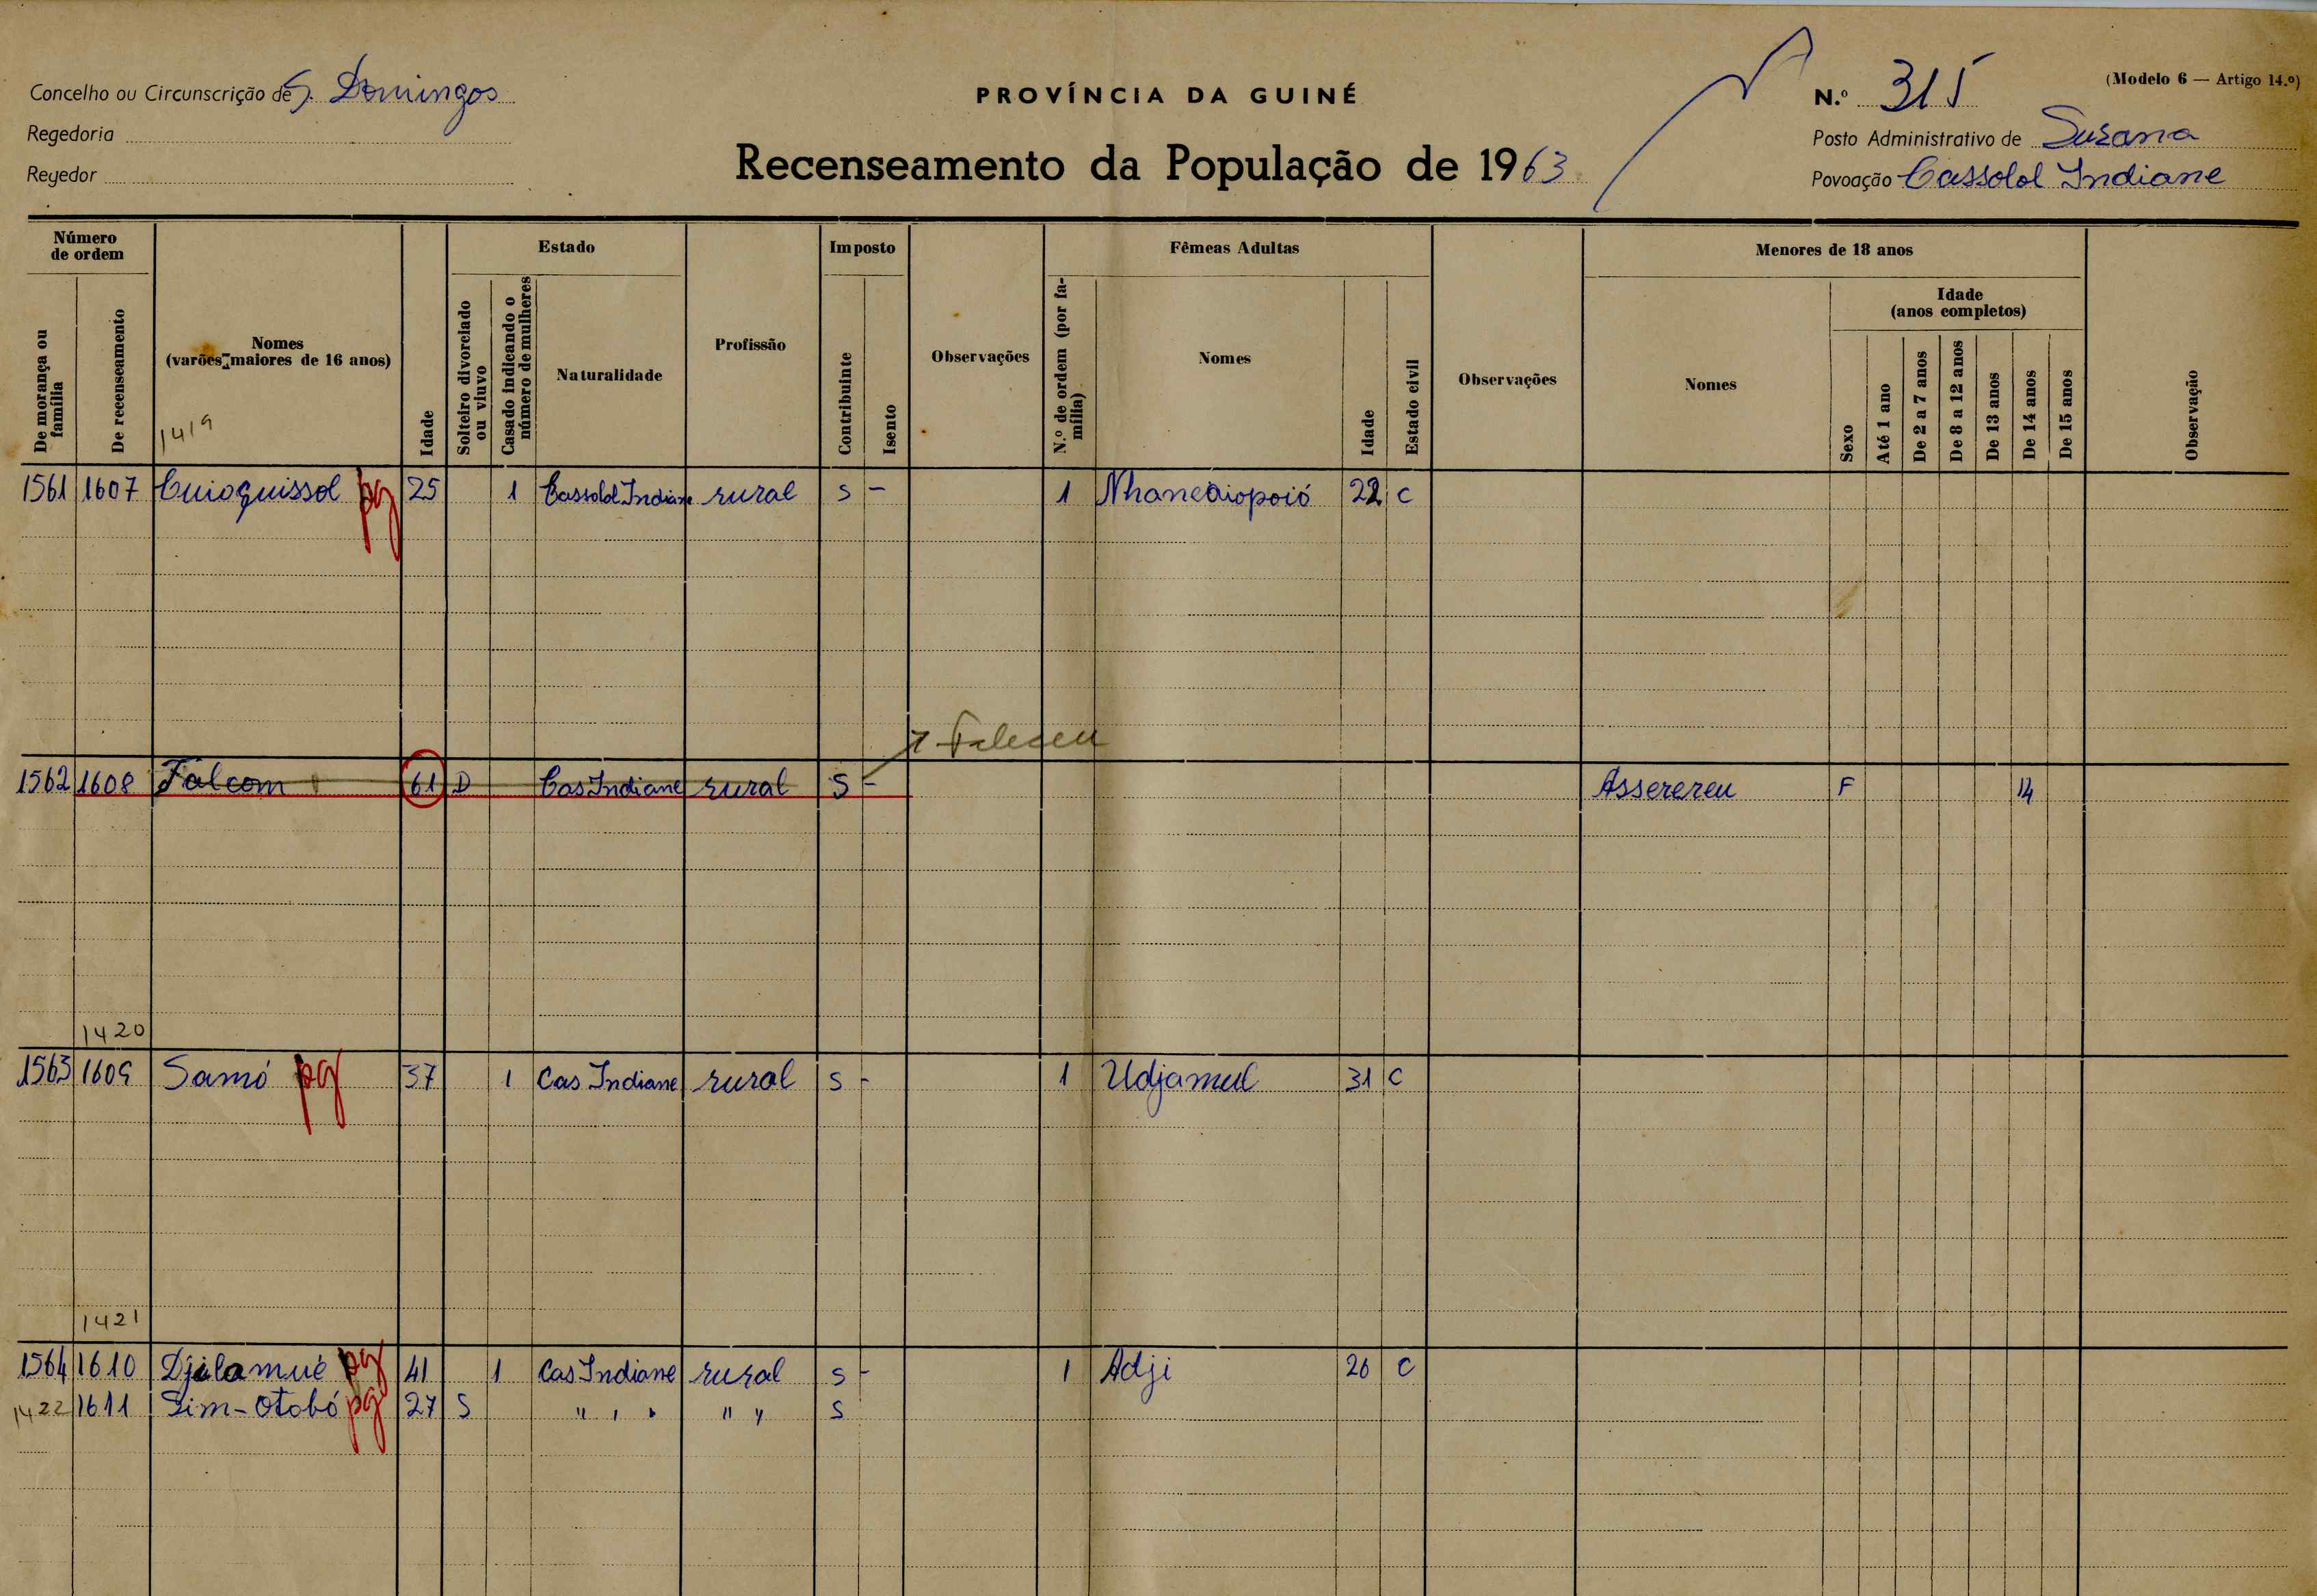 Concelho ou Circunscrição de S. Domingos
PROVÍNCIA DA GUINÉ
N.º 315
(Modelo 6 — Artigo 14.º)
Regedoria
Recenseamento da População de 1963
Posto Administrativo de Susana
Regedor
Povoação Cassolol Indiane
Número de ordem
Estado
Imposto
Fêmeas Adultas
Menores de 18 anos
De morança ou família
De recenseamento
Nomes (varões maiores de 16 anos)
Idade
Solteiro divorciado ou viuvo
Casado indicando o número de mulheres
Naturalidade
Profissão
Contribuinte
Isento
Observações
N.º de ordem (por família)
Nomes
Idade
Estado civil
Observações
Nomes
Sexo
Idade (anos completos)
Até 1 ano
De 2 a 7 anos
De 8 a 12 anos
De 13 anos
De 14 anos
De 15 anos
Observação
1419
1561 1607 Cuioquissol pg 25 1 Cassolol Indiane rural S - 1 Nhaneaiopoió 22 C
Faleceu
1562 1608 Falcom 61 D Cas Indiane rural S - Asserereu F 14
1420
1563 1609 Samó pg 37 1 Cas Indiane rural S - 1 Udjamul 31 C
1421
1564 1610 Djilamué pg 41 1 Cas Indiane rural S - 1 Adji 26 C
1422 1611 Sim-Otobó pg 27 S " " " " " S